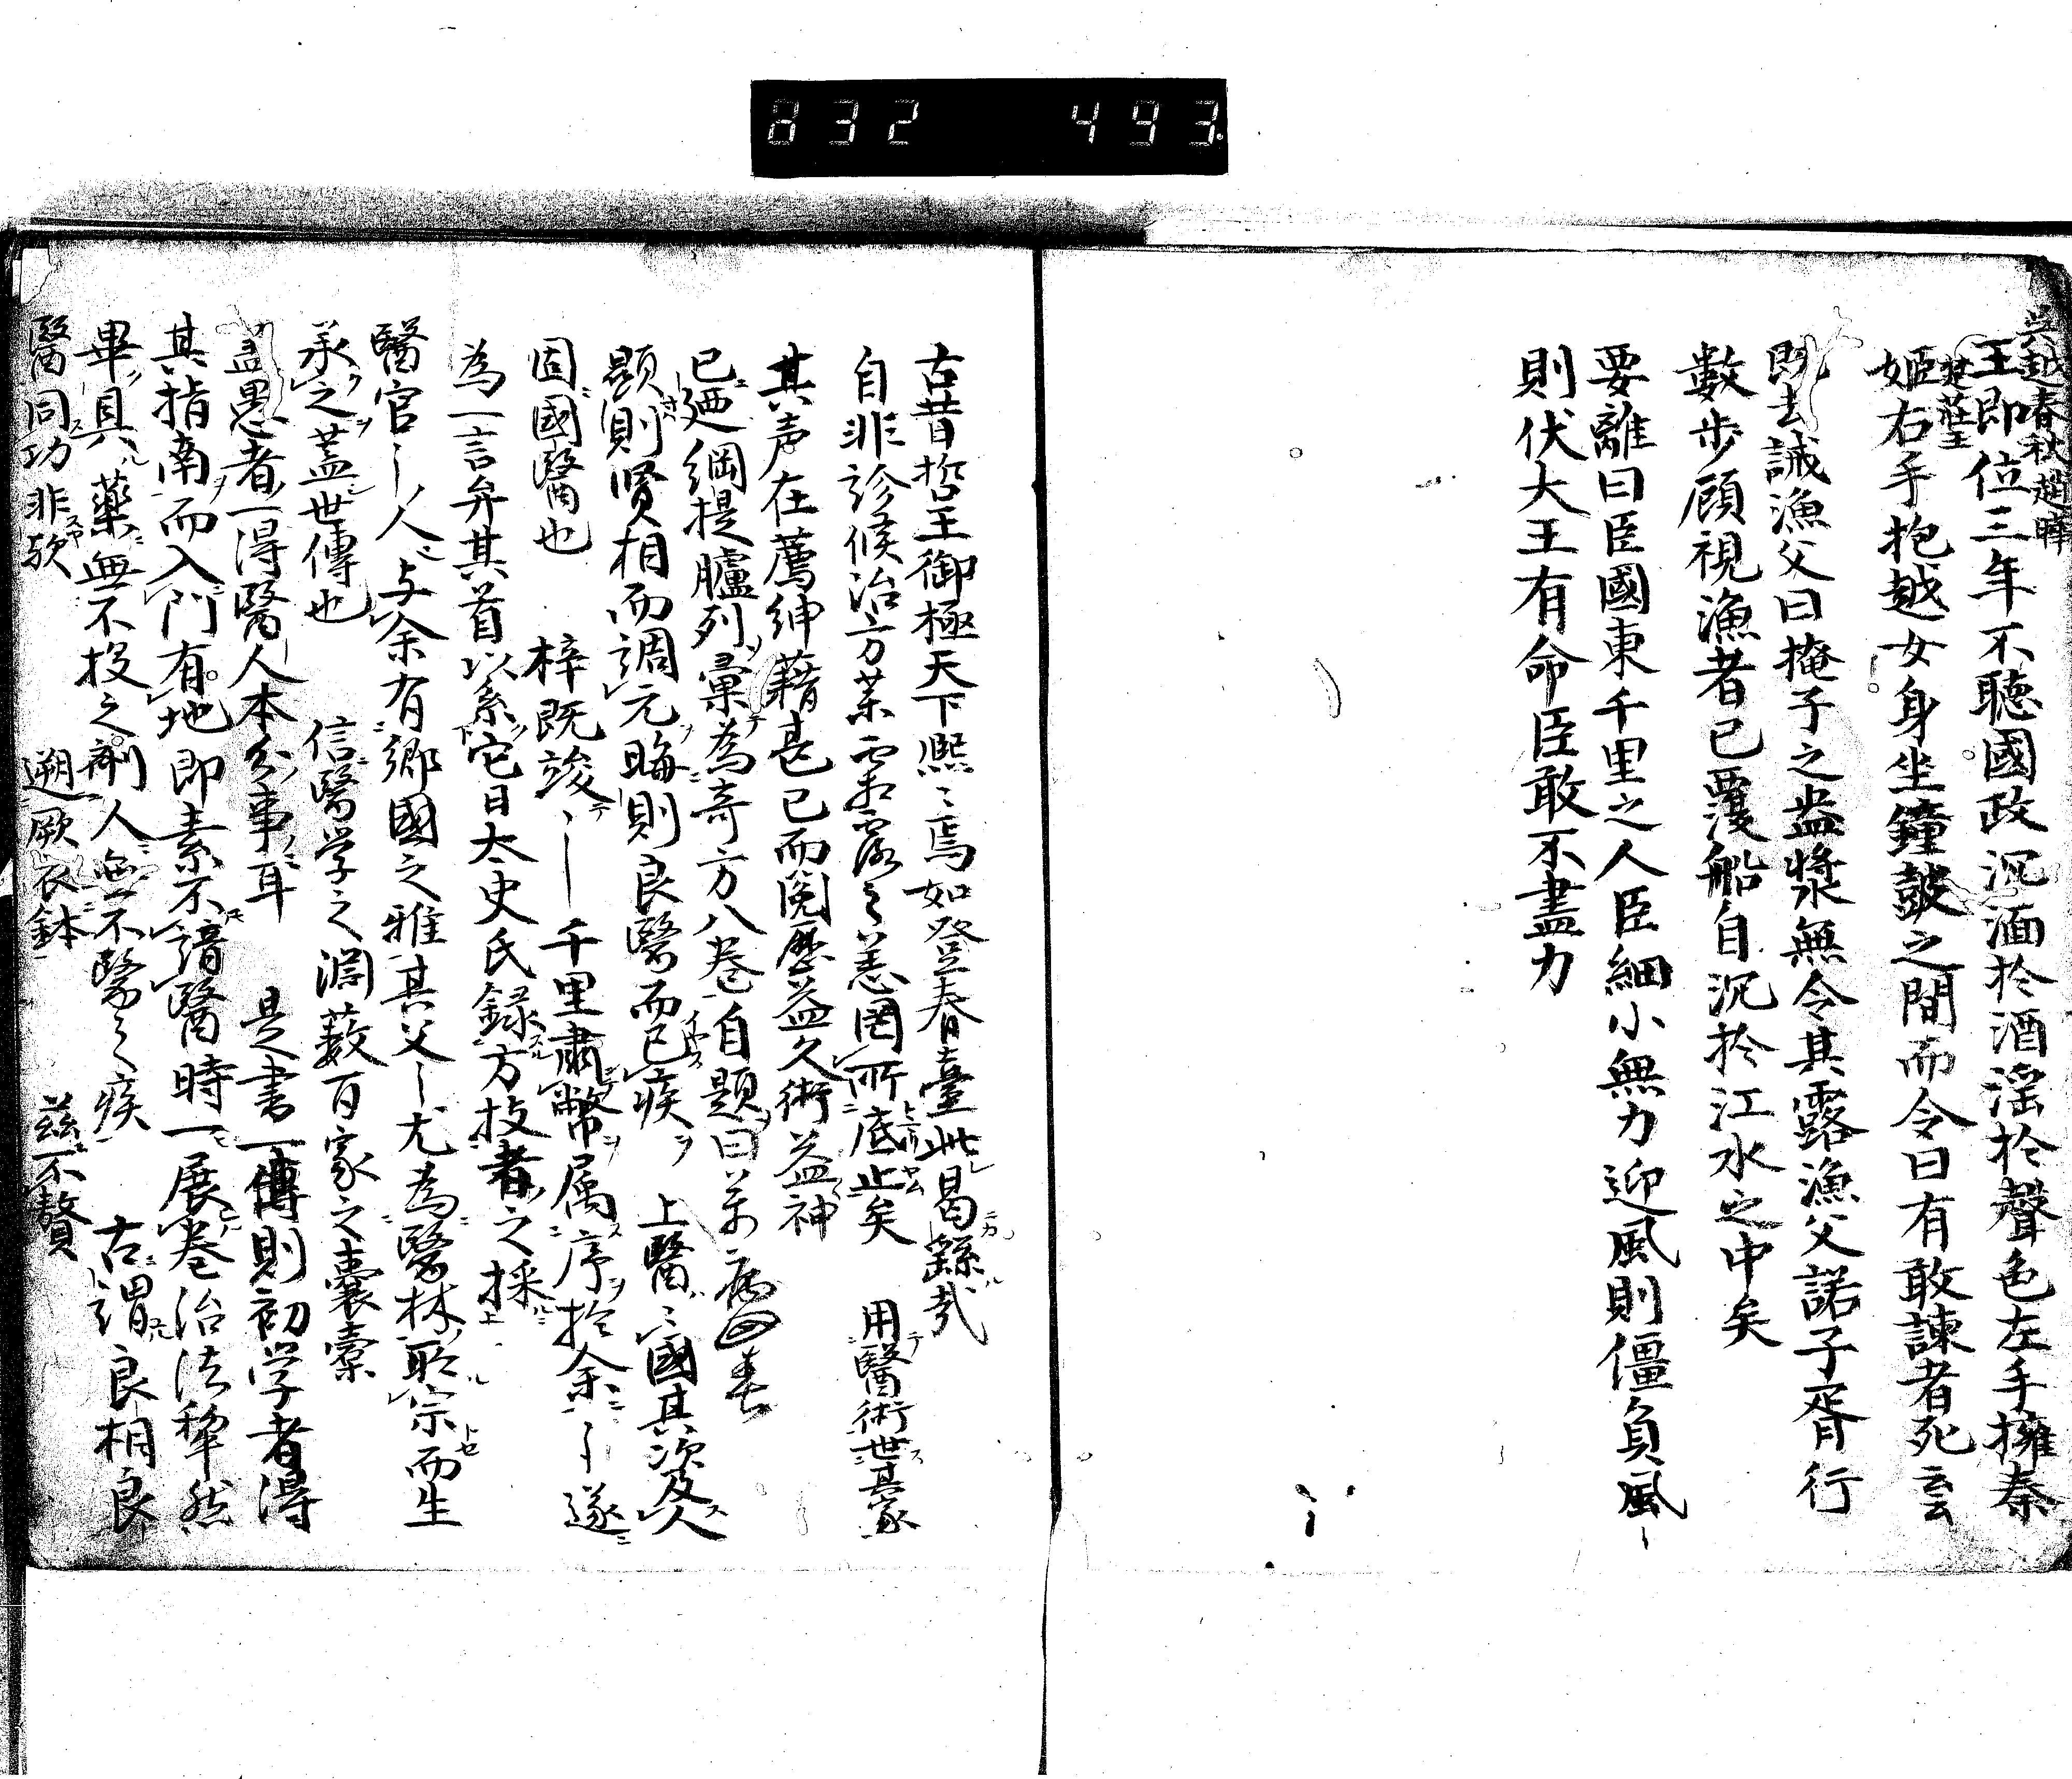 832 493.
吳越春秋 趙曄
楚莊王
王即位三年不聽國政沉湎於酒淫於聲色左手擁秦
姬右手抱越女身坐鐘鼓之間而令曰有敢諫者死
既去誡漁父曰掩子之盎漿無令其露漁父諾子胥行
數步顧視漁者已覆船自沉於江水之中矣
要離曰臣國東千里之人臣細小無力迎風則僵負風
則伏大王有命臣敢不盡力
古昔哲王御極天下熙〻焉如登春臺此曷繇哉
自非診候治方 恙罔所底止矣 用醫術世其家
其声在薦紳藉甚已而閱歷益久術益神
已廼綱提臚列彙為奇方八卷自題曰万病回春
顯則賢相而調元晦則良醫而已疾 上醫〻國其次及人
固國醫也 梓既竣 千里肅幣属序於余 遂
為一言弁其首以系它日太史氏録方技者之採
醫官 人与余有鄉國之雅其父 尤為醫林所宗而生
承之蓋世傳也 信醫学之淵藪百家之囊橐
盖愚者一得醫人本分事耳 是書一傳則初学者得
其指南而入門有地即素不諳醫時一展卷治法犂然
畢具藥無不投之劑人無不醫之疾 古謂良相良
醫同功非歟 遡厥衣鉢 茲不贅